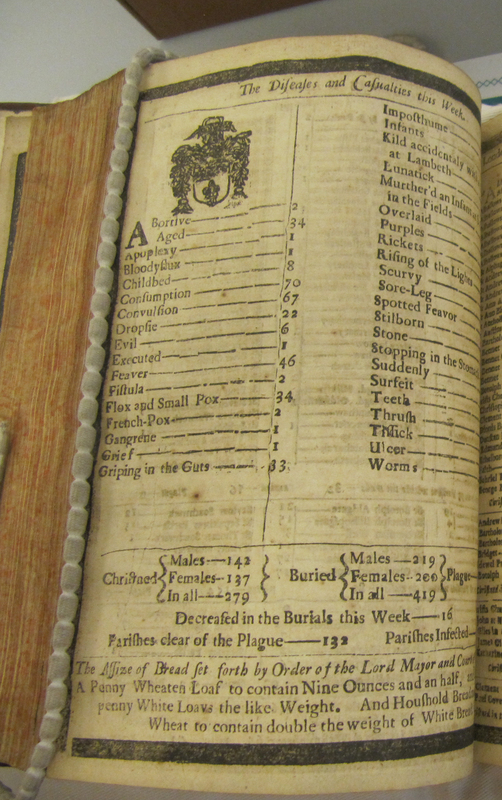 The Diſeaſes and Caſualties this Week.
ABortive 2
Aged 34
Apoplexy 1
Bloodyflux 1
Childbed 8
Conſumption 70
Convulſion 67
Dropſie 22
Evil 6
Executed 1
Feaver 46
Fiſtula 2
Flox and Small Pox 34
French-Pox 2
Gangrene 1
Grief 1
Griping in the Guts 33
Impoſthume
Infants
Kild accidentaly
at Lambeth
Lunatick
Murther'd an Infant
in the Fields
Overlaid
Purples
Rickets
Riſing of the Lights
Scurvy
Sore-Leg
Spotted Feavor
Stilborn
Stone
Stopping in the
Suddenly
Surfeit
Teeth
Thruſh
Tiſſick
Ulcer
Worms
Chriſtned
Males 142
Females 137
In all 279
Buried
Males 219
Females 200
In all 419
Plague
Decreaſed in the Burials this Week 16
Pariſhes clear of the Plague 132 Pariſhes Infected
The Aſſize of Bread ſet forth by Order of the Lord Mayor and Court
A Penny Wheaten Loaf to contain Nine Ounces and an half,
penny White Loavs the like Weight. And Houſhold
Wheat to contain double the weight of White